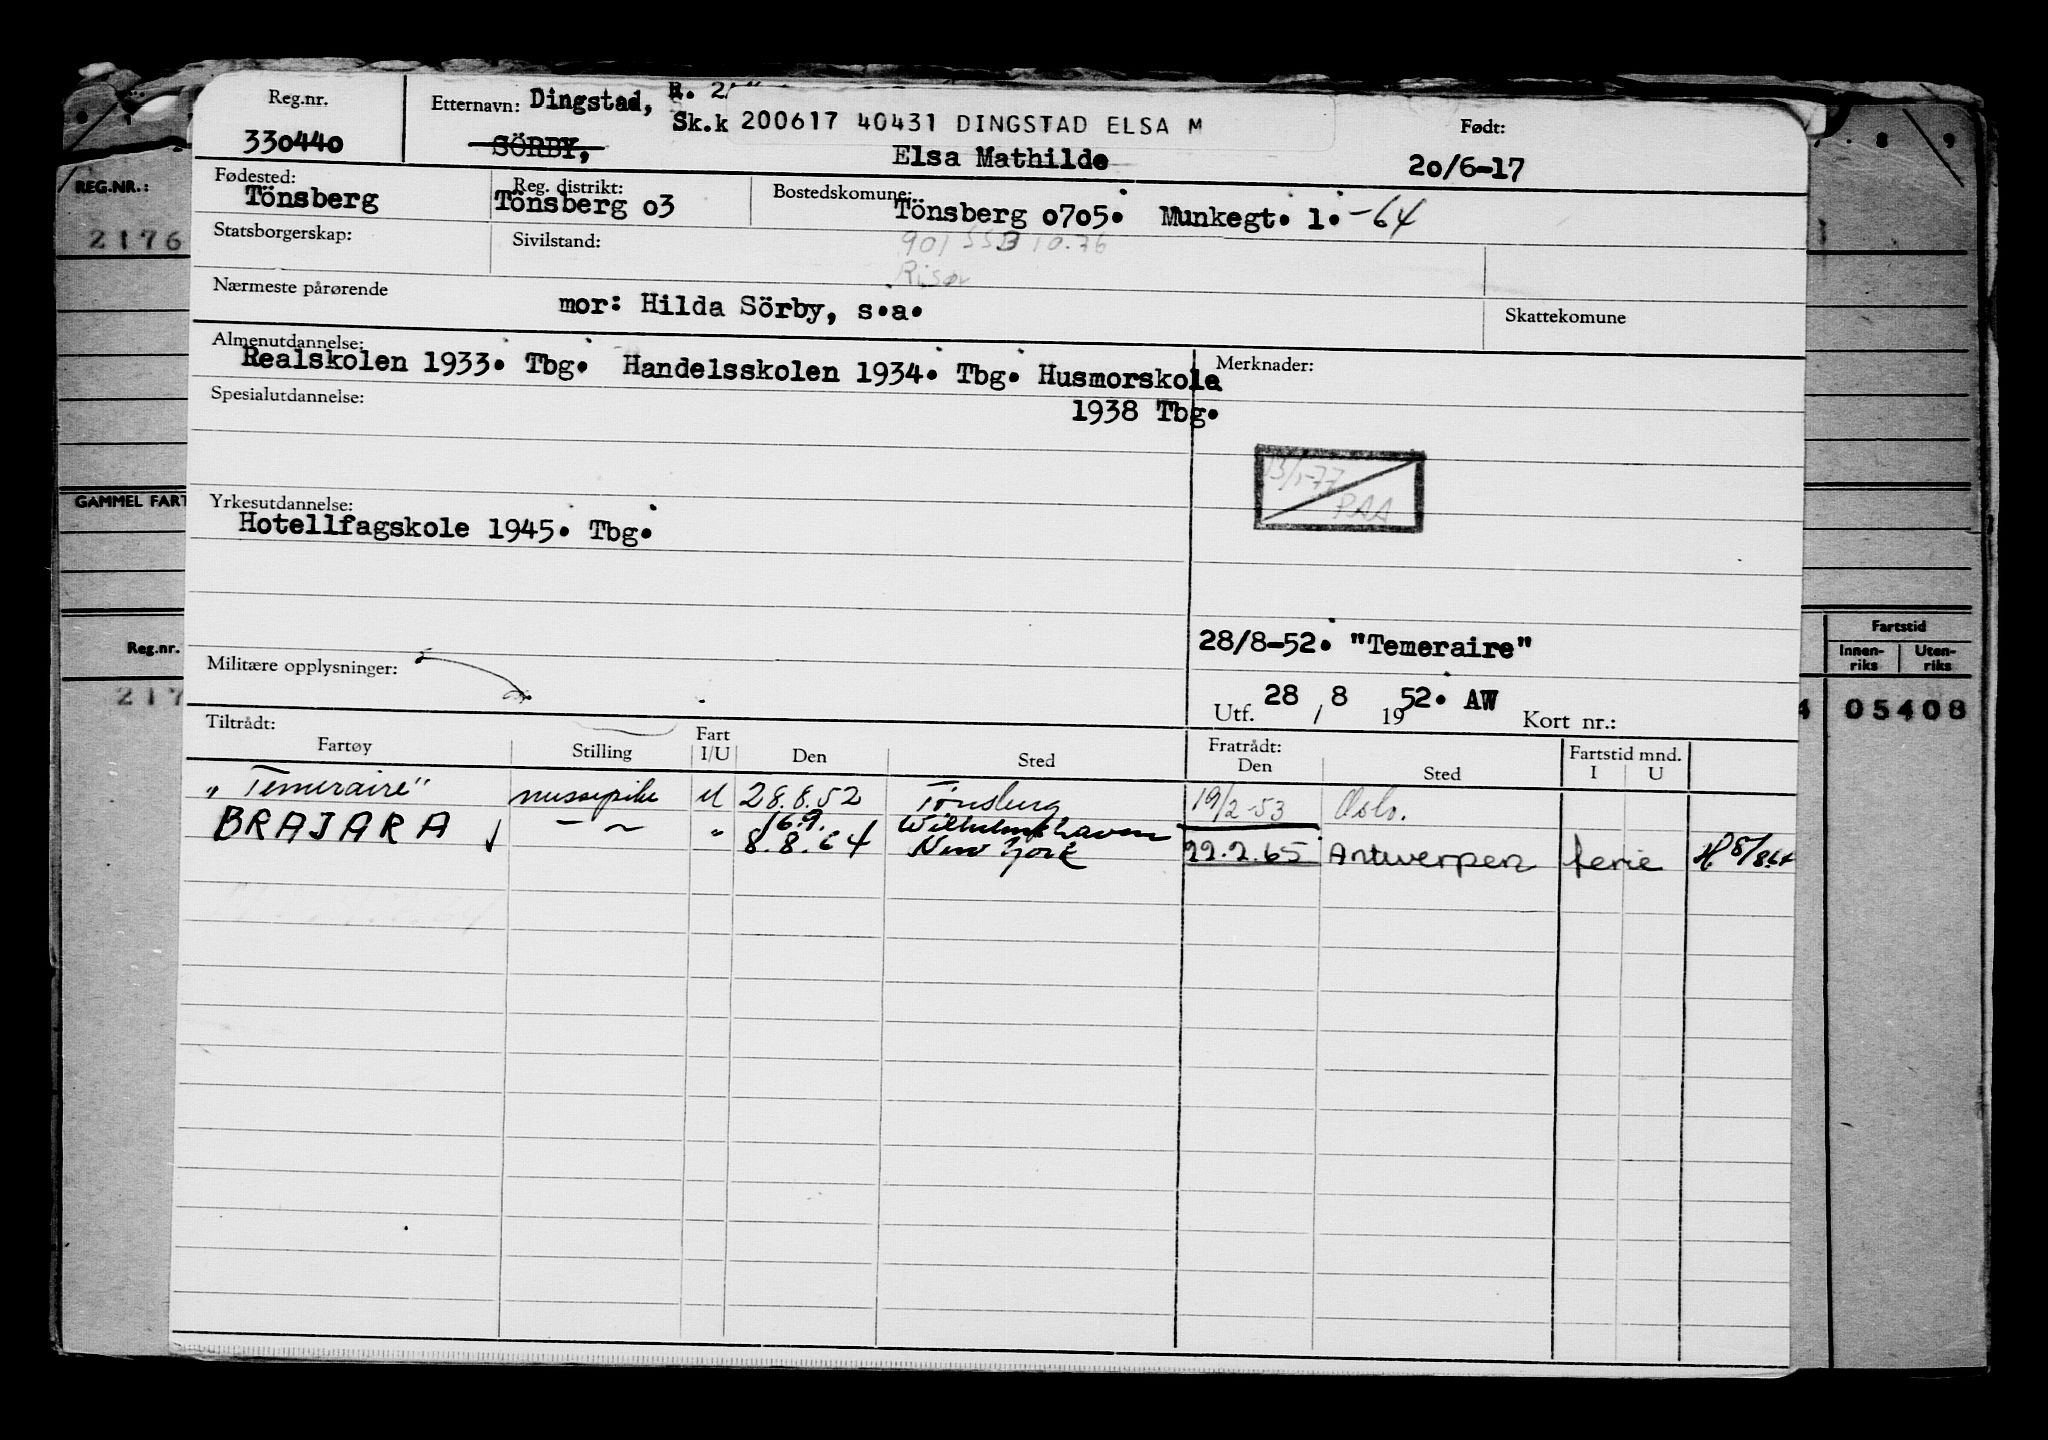 Reg.nr.
330440
Etternavn: Dingstad,
Sk.k 200617 40431 DINGSTAD ELSA M
SÖRBY,
Elsa Mathilde
Født:
20/6-17
Fødested:
Tönsberg
Reg. distrikt:
Tönsberg 03
Bostedskomune:
Tönsberg 0705. Munkegt. 1. -64
Statsborgerskap:
Sivilstand:
901 SSB 10.76
Risør
Nærmeste pårørende
mor: Hilda Sörby, s.a.
Skattekomune
Almenutdannelse:
Realskolen 1933. Tbg. Handelsskolen 1934. Tbg. Husmorskole
1938 Tbg.
Merknader:
Spesialutdannelse:
PAA
Yrkesutdannelse:
Hotellfagskole 1945. Tbg.
28/8-52. "Temeraire"
Militære opplysninger:
Utf. 28 / 8 1952. AW
Kort nr.:
Tiltrådt:
Fartøy
Stilling
Fart
I/U
Den
Sted
Fratrådt:
Den
Sted
Fartstid mnd.
I
U
„Temeraire" messepike U 28.8.52 Tönsberg 19/2-53 Oslo.
16.9. Wilhelmshaven
BRAJARA — ~ " 8.8.64 New York 22.2.65 Antwerpen ferie
REG.NR.:
2176
GAMMEL FART
Reg.nr.
217
8 9
Fartstid
Innen-
riks
Uten-
riks
4 05408